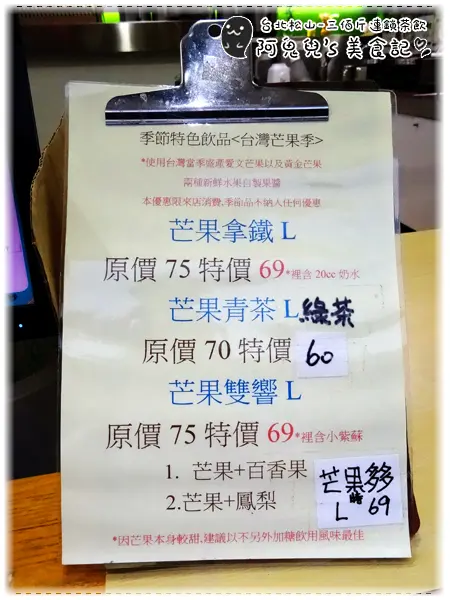 台北松山-三佰斤連鎖茶飲
阿兔兒's 美食記
季節特色飲品<台灣芒果季>
*使用台灣當季盛產愛文芒果以及黃金芒果
兩種新鮮水果自製果醬
本優惠限來店消費,季節品不納入任何優惠
芒果拿鐵 L
原價 75 特價 69*裡含 20cc 奶水
芒果青茶 L 綠茶
原價 70 特價 60
芒果雙響 L
原價 75 特價 69*裡含小紫蘇
1. 芒果+百香果
2.芒果+鳳梨
芒果多多
L 69
*因芒果本身較甜,建議以不另外加糖飲用風味最佳